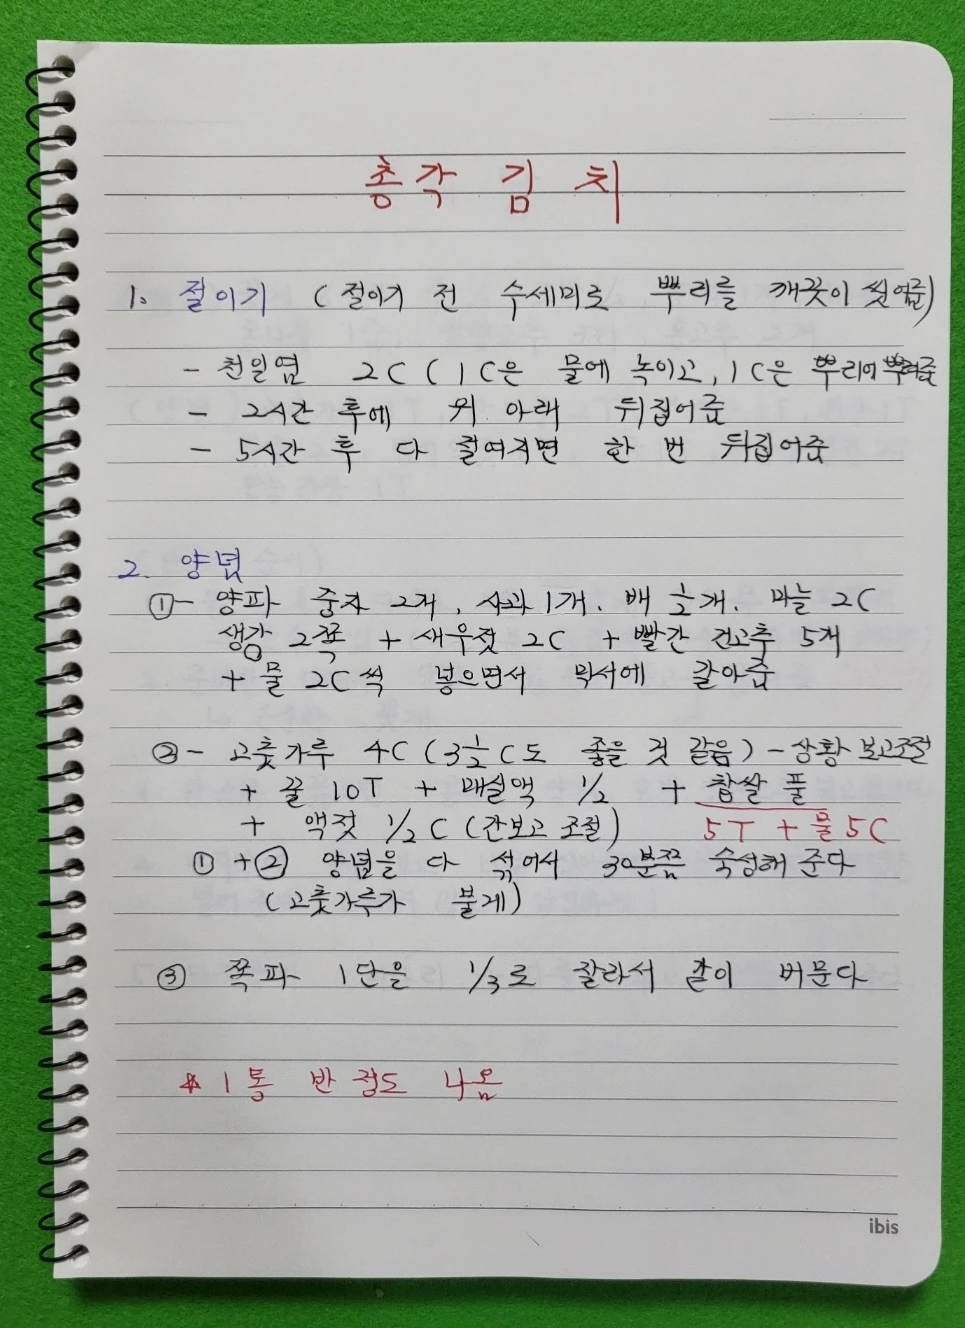 총각 김치
1. 절이기 (절이기 전 수세미로 뿌리를 깨끗이 씻어줌)
- 천일염 2C (1C은 물에 녹이고, 1C은 뿌리에 뿌려줌
- 2시간 후에 위. 아래 뒤집어줌
- 5시간 후 다 절여지면 한 번 뒤집어줌
2. 양념
①- 양파 중자 2개, 사과 1개. 배 ½개. 마늘 2C
생강 2쪽 + 새우젓 2C + 빨간 건고추 5개
+ 물 2C 씩 넣으면서 믹서에 갈아줌
②- 고춧가루 4C (3½C도 좋을 것 같음) - 상황 보고 조절
+ 꿀 10T + 매실액 1/2 + 찹쌀 풀
+ 액젓 1/2 C (간보고 조절) 5T + 물 5C
① + ② 양념을 다 섞어서 30분끔 숙성해 준다
(고춧가루가 불게)
③ 쪽파 1단을 1/3로 잘라서 같이 버문다
* 1통 반 정도 나옴
ibis